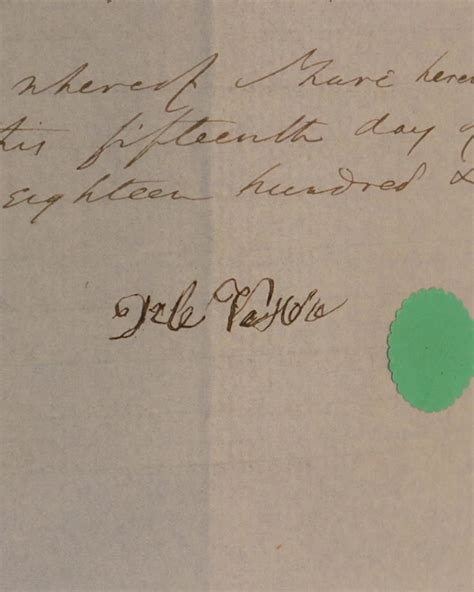 whereof I have here
this fifteenth day of
Eighteen hundred &